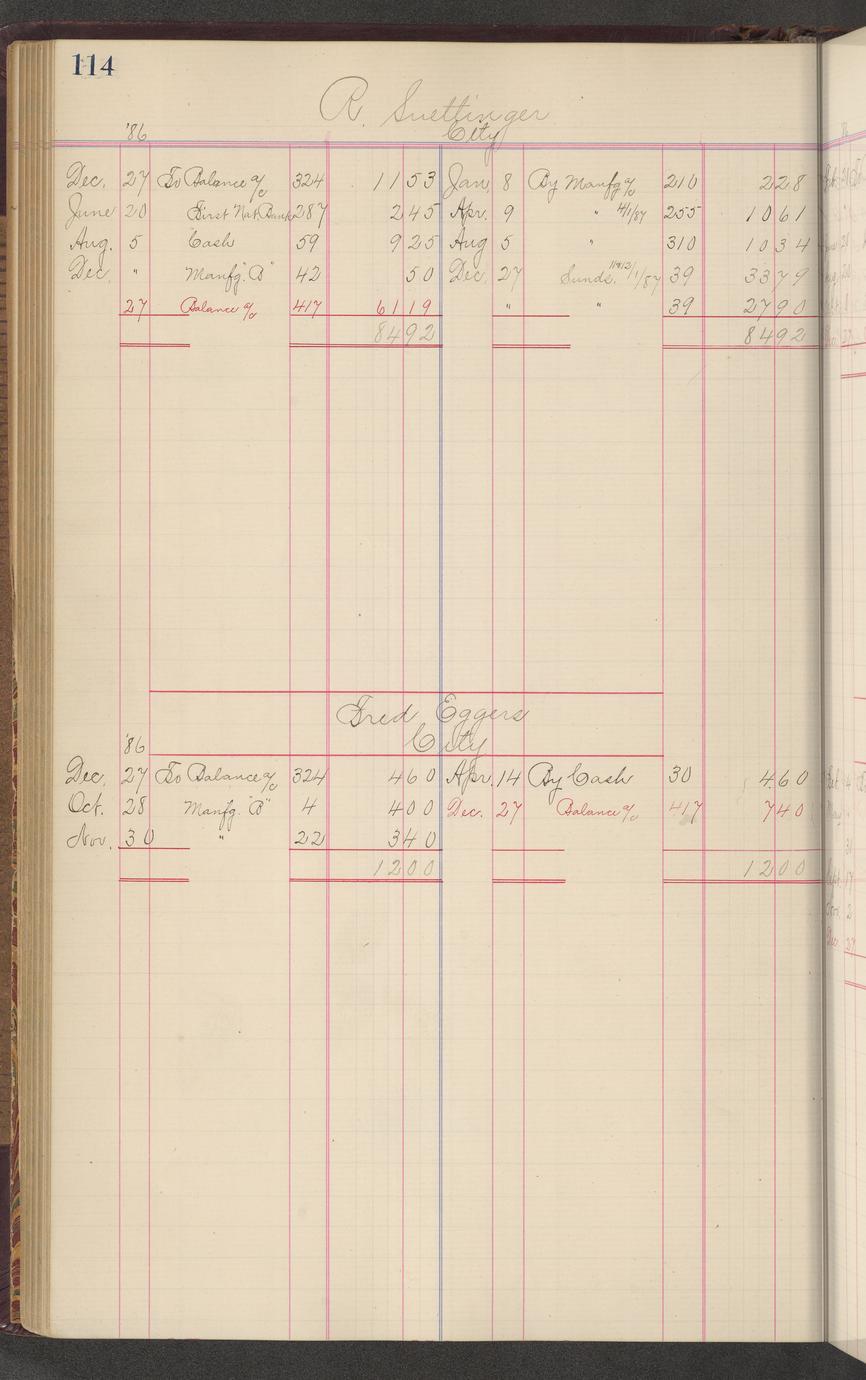 114
R. Suettinger
'86 City
Dec. 27 To Balance a/c 324 1153 Jan. 8 By Manfg a/c 210 228
June 20 First Nat Bank 287 245 Apr. 9 " 4/1/87 255 1061
Aug. 5 Cash 59 925 Aug 5 " 310 1034
Dec. " Manfg. "B" 42 50 Dec. 27 Sunds. 39 3379
27 Balance a/c 417 6119 " " 39 2790
8492 8492
Fred Eggers
'86 City
Dec. 27 To Balance a/c 324 460 Apr. 14 By Cash 30 460
Oct. 28 Manfg. "B" 4 400 Dec. 27 Balance a/c 417 740
Nov. 30 " 22 340
1200 1200